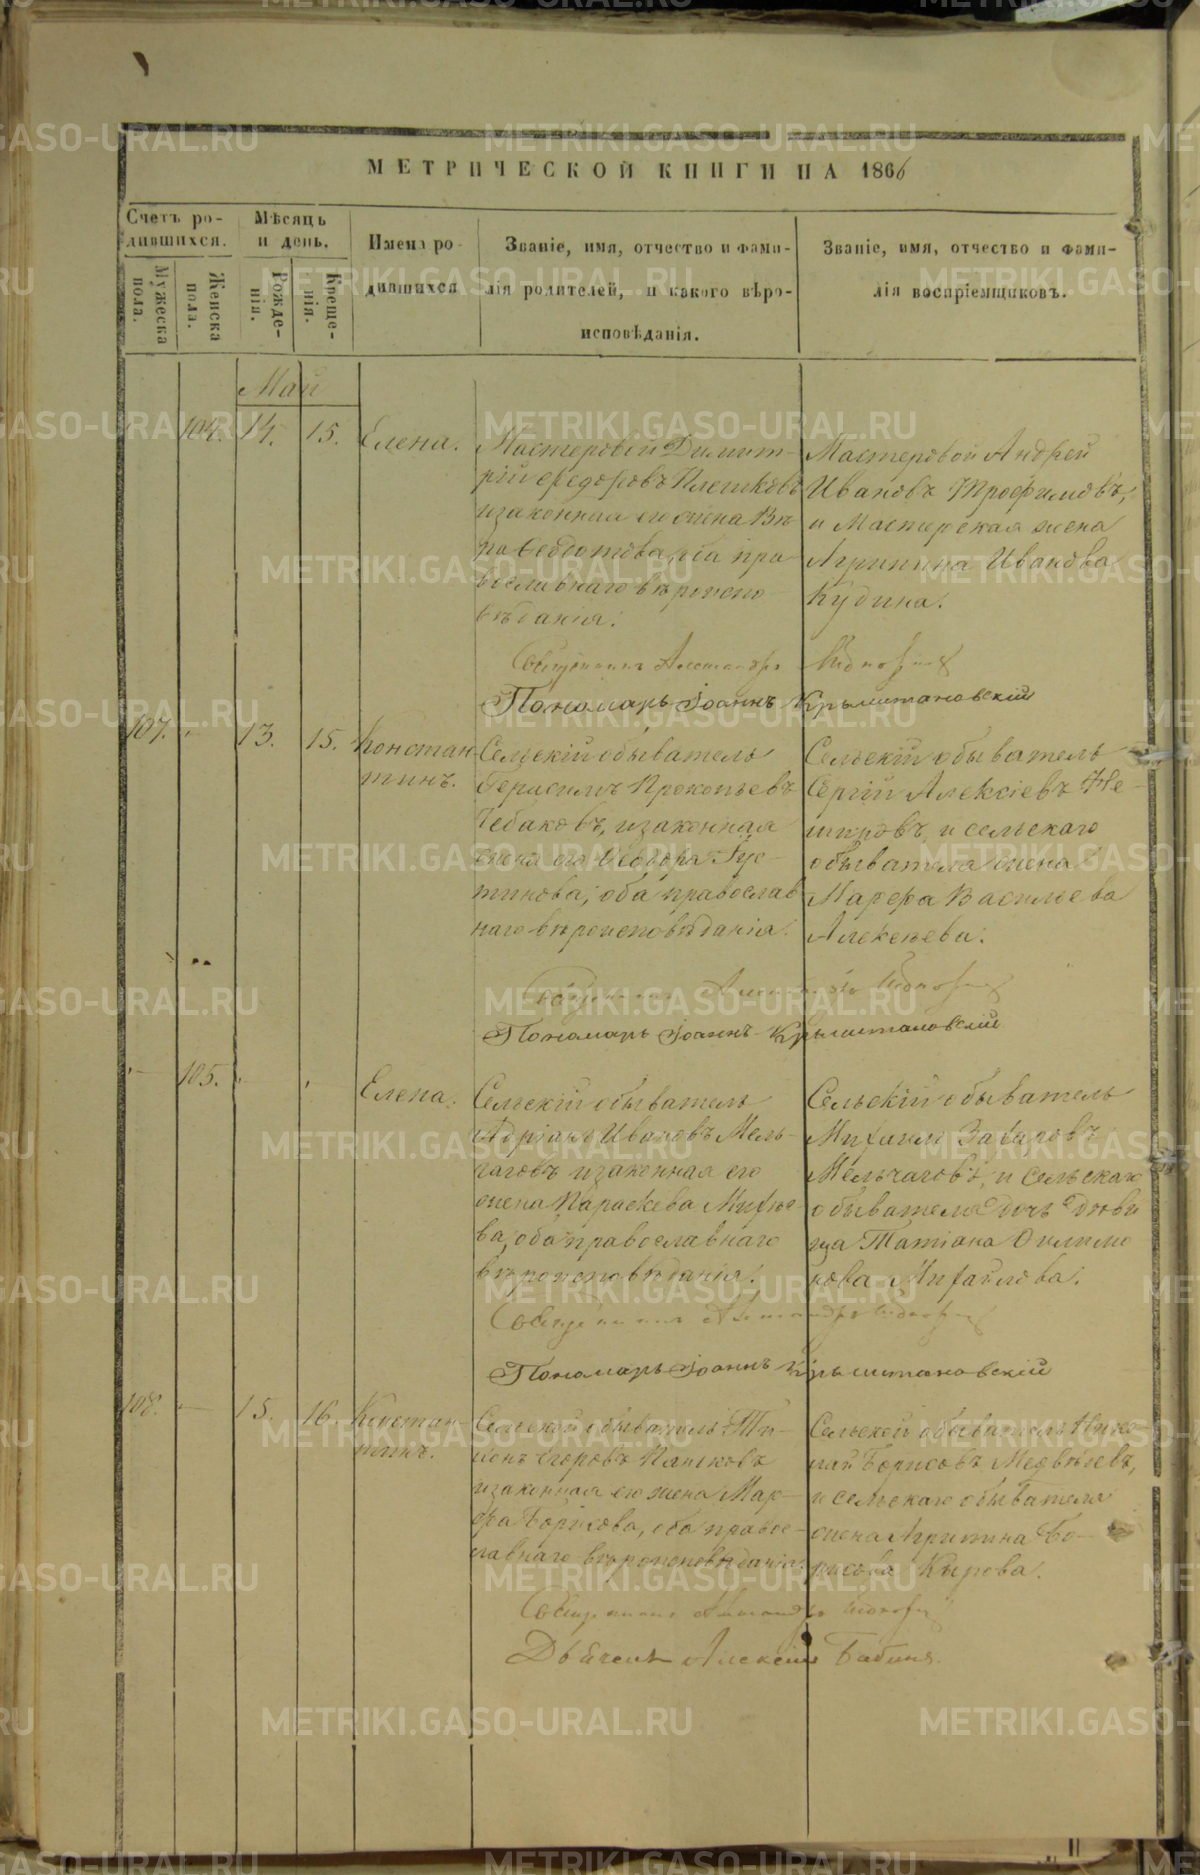 МЕТРИЧЕСКОЙ КНИГИ НА 1866
Счетъ ро-
дившихся.
Мѣсяцъ
и день.
Имена ро-
дившихся
Званіе, имя, отчество и фами-
лія родителей, и какого вѣро-
исповѣданія.
Званіе, имя, отчество и фами-
лія воспріемщиковъ.
Мужеска
пола.
Женска
пола.
Рожде-
нія.
Креще-
нія.
Май
104. 14. 15. Елена.
Мастеровой Димит-
рій Федоровъ Плешковъ
и законная его жена Вѣ
ра Федотова, оба пра
вославнаго вѣроиспо-
вѣданія.
Мастеровой Андрей
Ивановъ Трофимовъ,
и Мастерская жена
Агрипина Иванова
Кудина.
Священникъ Александръ
Пономарь Іоаннъ Крыштановскій
107. 13. 15. Констан
тинъ.
Сельскій обыватель
Герасимъ Прокопьевъ
Чебаковъ, и законная
жена его Феодора Гус-
тинова, оба православ
наго вѣроисповѣданія.
Сельскій обыватель
Сергій Алексіевъ
и сельскаго
обывателя жена
Марфа Васильева
Алексѣева.
Священникъ Александръ
Пономарь Іоаннъ Крыштановскій
105. Елена.
Сельскій обыватель
Адріанъ Ивановъ Мель-
чаговъ и законная его
жена Параскева Михѣе
ва, оба православнаго
вѣроисповѣданія.
Сельскій обыватель
Михаилъ Захаровъ
Мельчаговъ, и сельскаго
обывателя дочь дѣви
ца Татіана
Михайлова.
Священникъ Александръ
Пономарь Іоаннъ Крыштановскій
108. 15. 16. Констан-
тинъ.
Сельской обыватель
Егоровъ
и законная его жена Мар-
фа Борисова, оба правос-
лавнаго вѣроисповѣданія.
Сельской обыватель Нико
лай Борисовъ Медвѣдевъ,
и сельскаго обывателя
жена Агрипина Бо-
рисова Кырова.
Священникъ Александръ
Дьячекъ Алексій Бабинъ.
METRIKI.GASO-URAL.RU